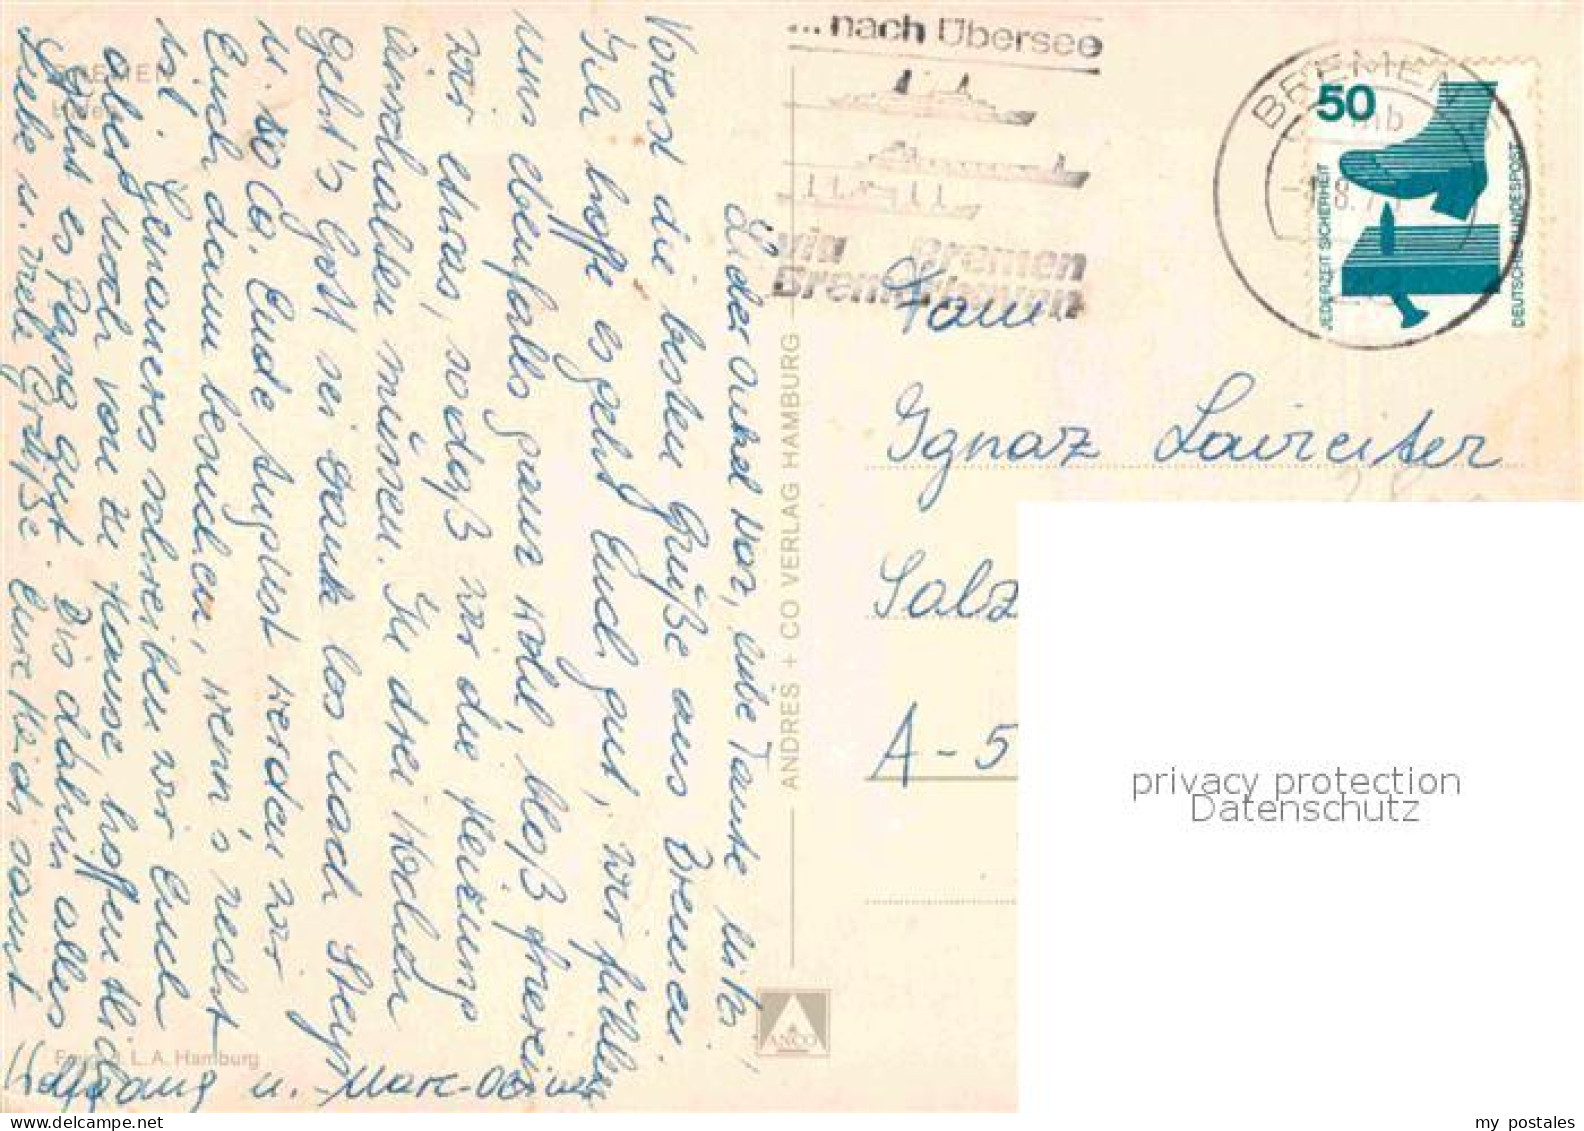 BREMEN
Hafen
Lieber Onkel Naz, liebe Tante Mitzi,
Vorerst die besten Grüße aus Bremen.
Ich hoffe es geht Euch gut, wir fühlen
uns ebenfalls ganz wohl, bloß frieren
wir etwas, sodaß wir die Heizung
einschalten müssen. In drei Wochen
geht's Gott sei Dank los nach Steyr
u. so Ca. Ende August werden wir
Euch dann besuchen, wenn's recht
ist. Genaueres schreiben wir Euch
aber noch von zu Hause, hoffentlich
geht es Papa gut. Bis dahin alles
Liebe u. viele Grüße. Eure Heidi samt
Wolfgang u. Marc-Oliver
L. A. Hamburg
ANDRES + CO VERLAG HAMBURG
ANCO
...nach Übersee
via Bremen
Bremerhaven
BREMEN
50
JEDERZEIT SICHERHEIT
DEUTSCHE BUNDESPOST
Fam.
Ignaz Laireiter
Salz
A-5
privacy protection
Datenschutz
my postales